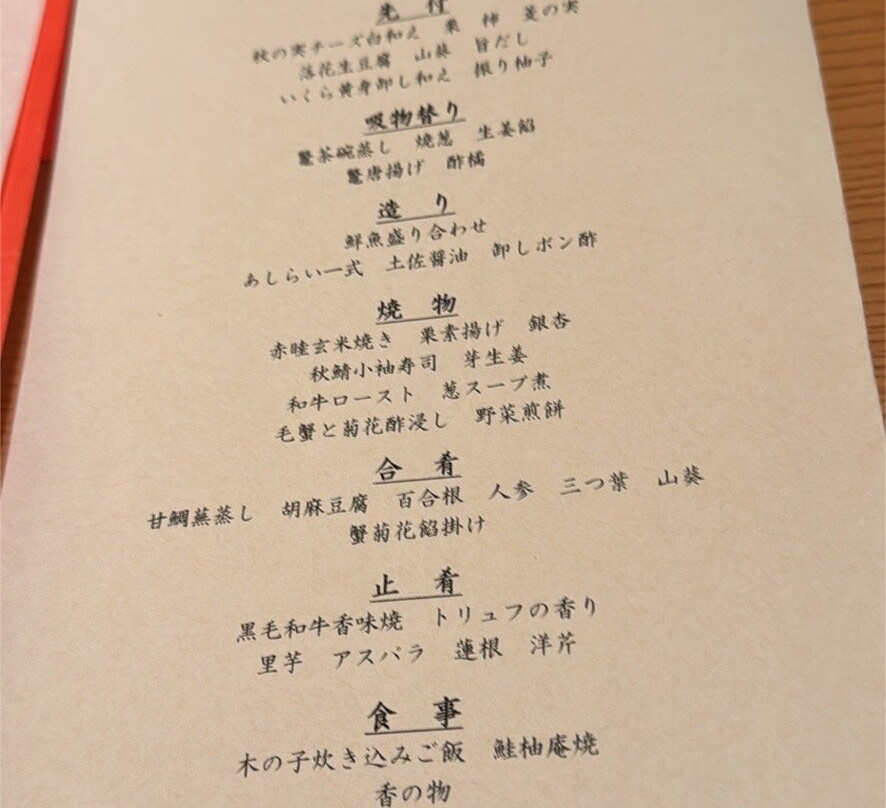 先付
秋の実チーズ白和え 栗 柿 菱の実
落花生豆腐 山葵 旨だし
いくら黄身卸し和え 振り柚子
吸物替り
鼈茶碗蒸し 焼葱 生姜餡
鼈唐揚げ 酢橘
造り
鮮魚盛り合わせ
あしらい一式 土佐醤油 卸しポン酢
焼物
赤睦玄米焼き 栗素揚げ 銀杏
秋鯖小袖寿司 芽生姜
和牛ロースト 葱スープ煮
毛蟹と菊花酢浸し 野菜煎餅
合肴
甘鯛蕪蒸し 胡麻豆腐 百合根 人参 三つ葉 山葵
蟹菊花餡掛け
止肴
黒毛和牛香味焼 トリュフの香り
里芋 アスパラ 蓮根 洋芹
食事
木の子炊き込みご飯 鮭柚庵焼
香の物